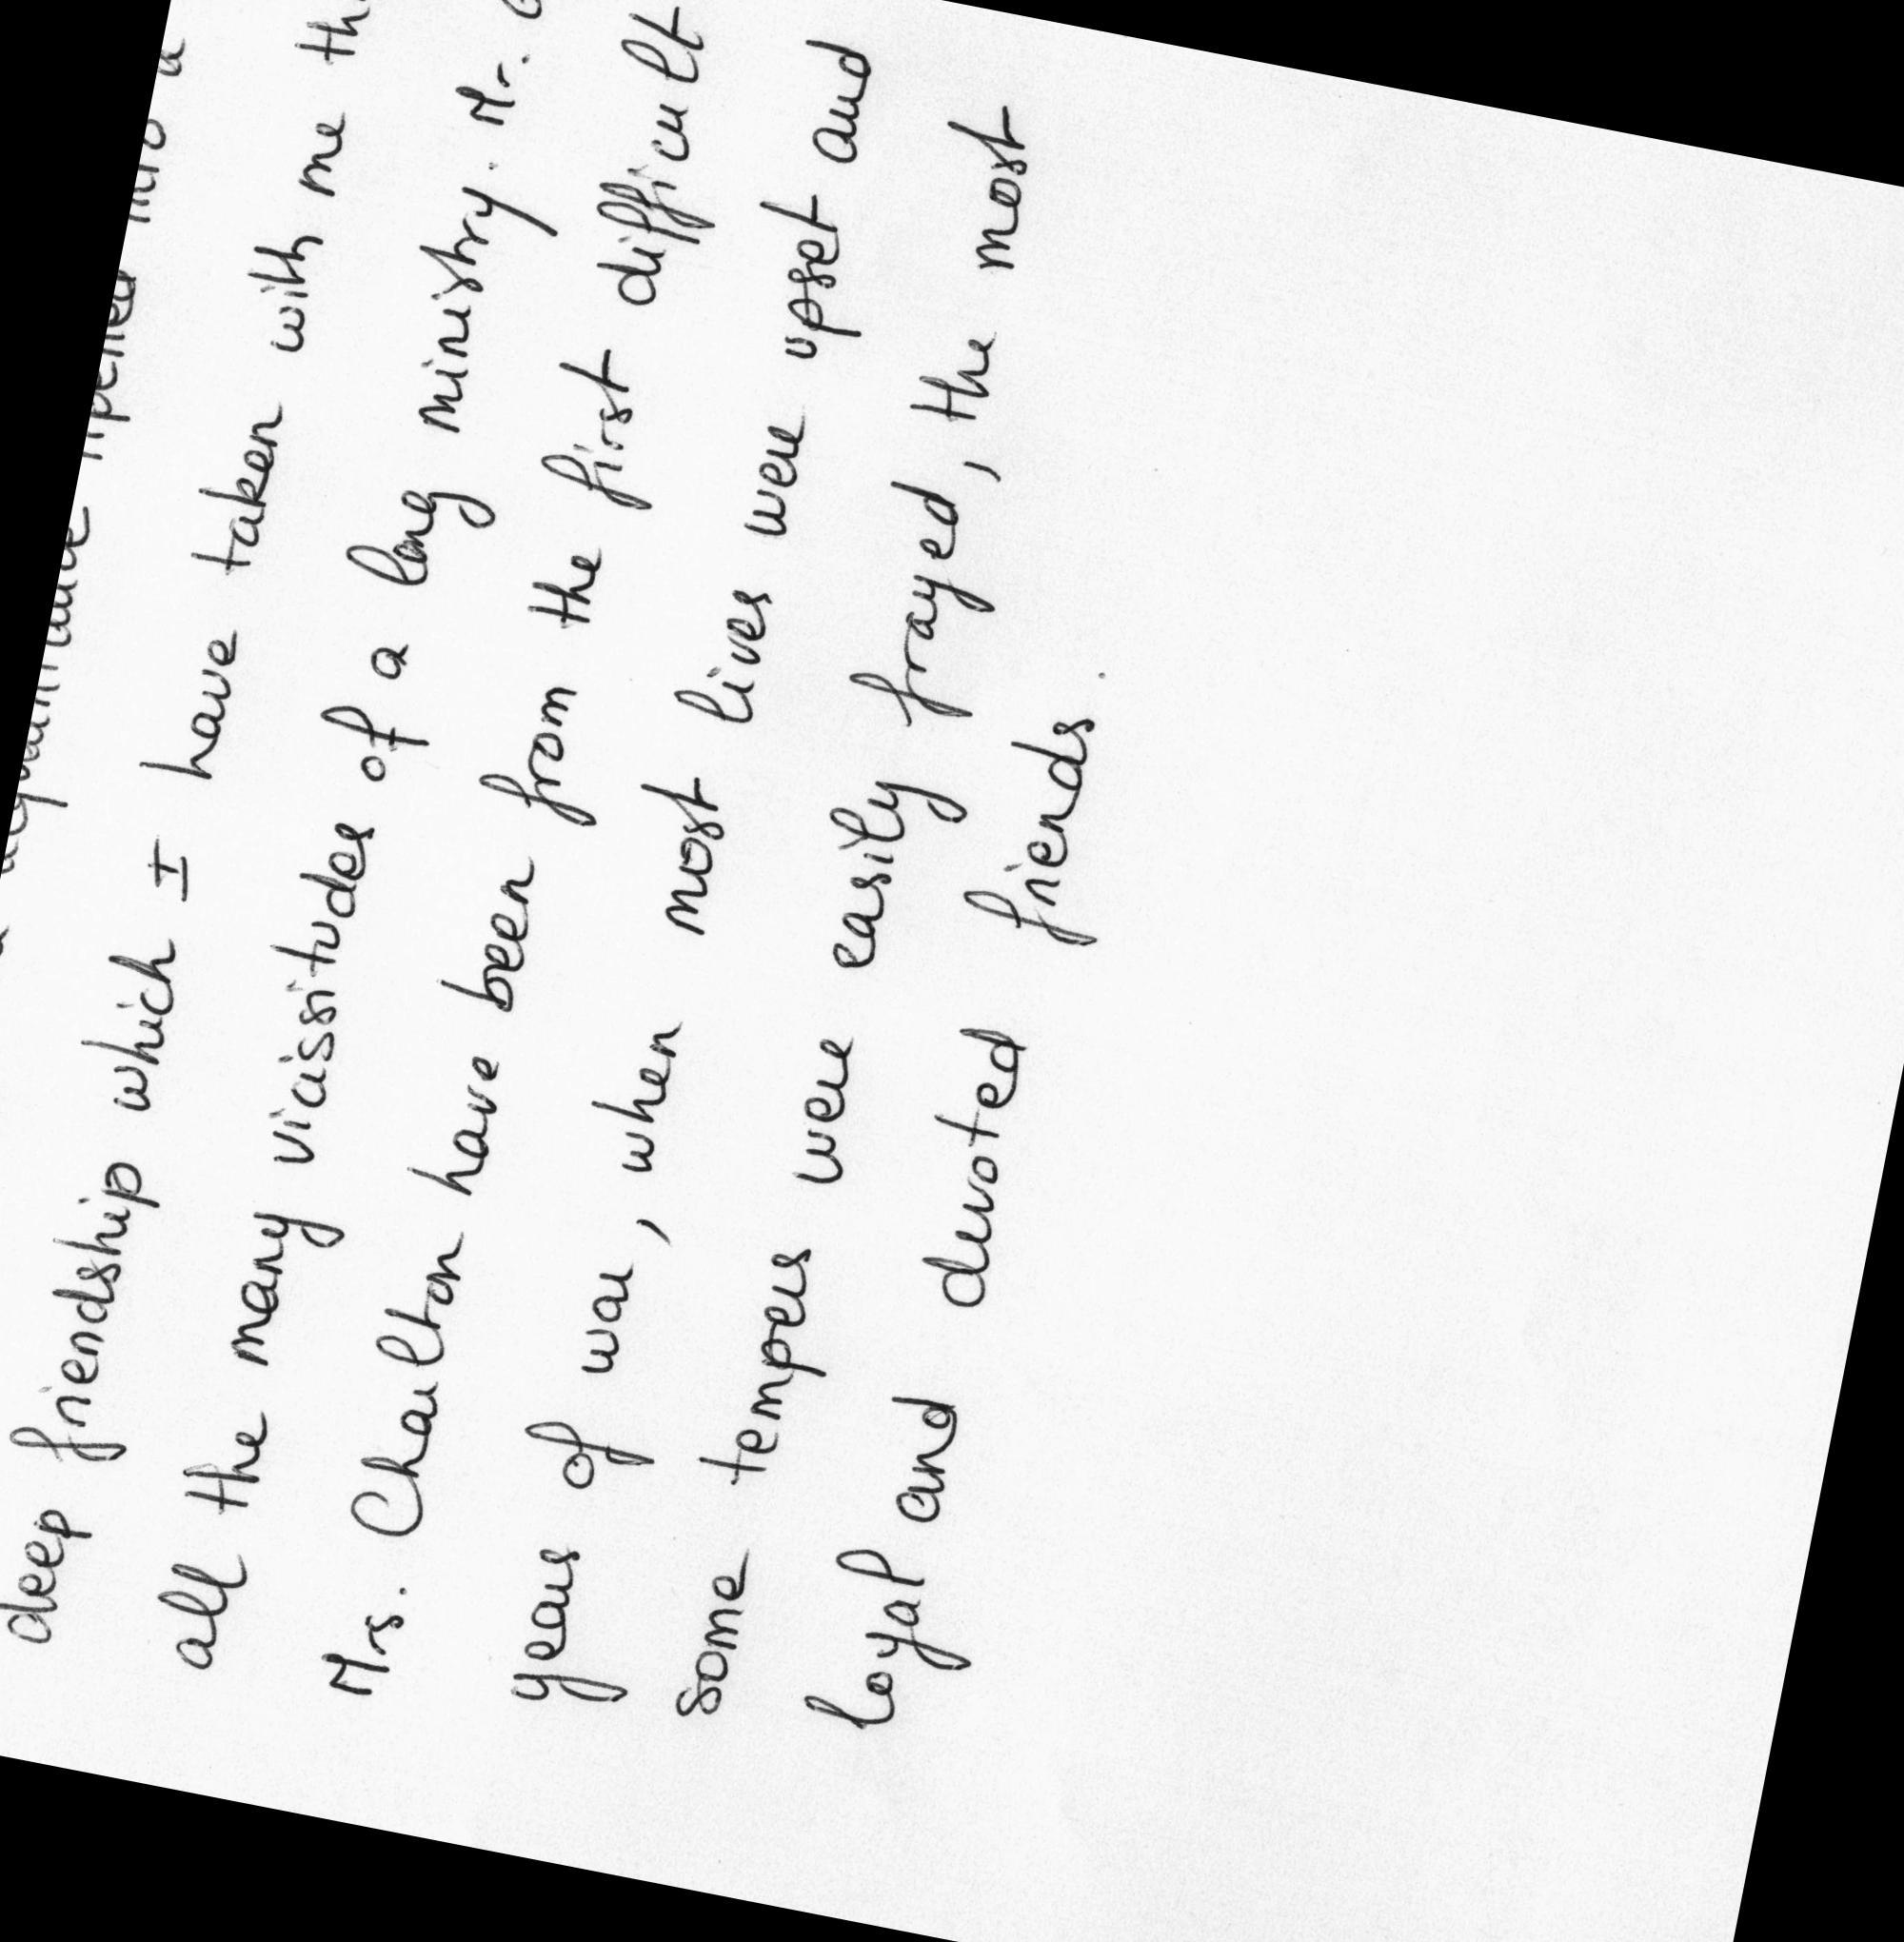 acquaintance ripened into a
deep friendship which I have taken with me th
all the many vicissitudes of a long ministry. Mr.
Mrs. Chaulton have been from the first difficult
years of war, when most lives were upset and
some tempers were easily frayed, the most
loyal and devoted friends.